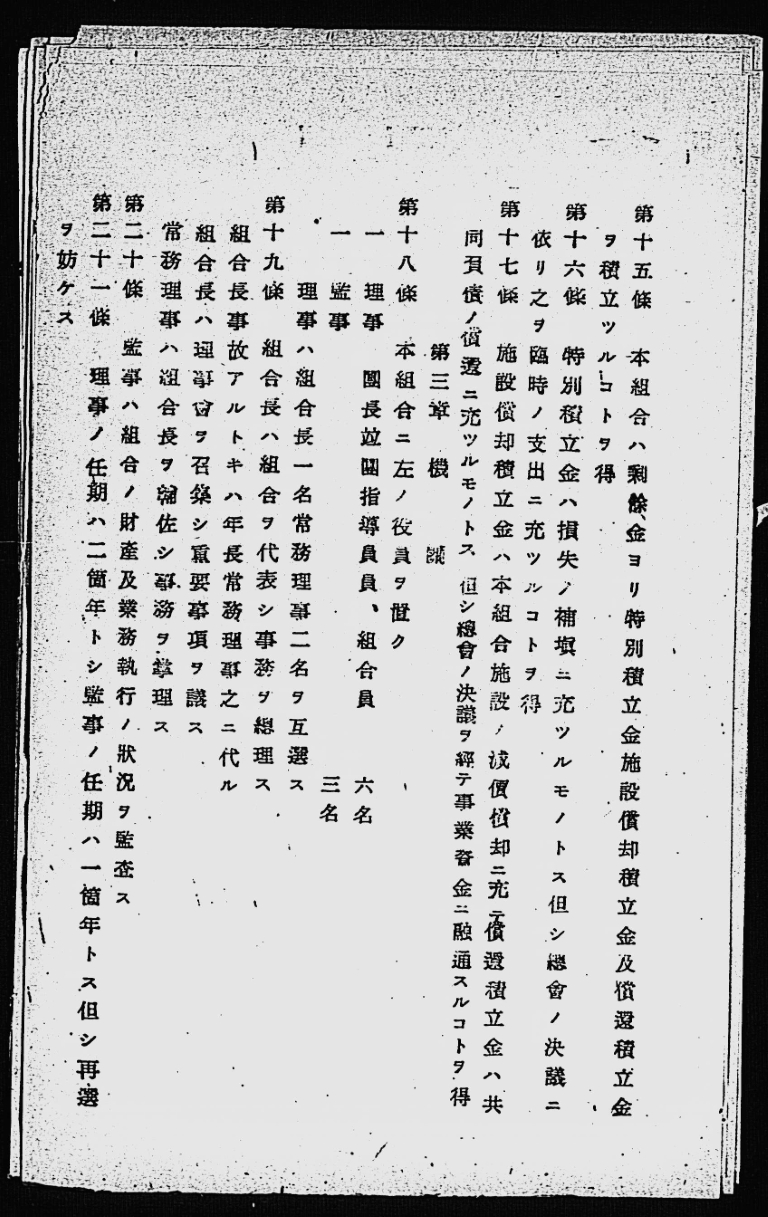 第十五條 本組合ハ剩餘金ヨリ特別積立金施設償却積立金及償還積立金
ヲ積立ツルコトヲ得
第十六條 特別積立金ハ損失ノ補塡ニ充ツルモノトス但シ總會ノ決議ニ
依リ之ヲ臨時ノ支出ニ充ツルコトヲ得
第十七條 施設償却積立金ハ本組合施設ノ減價償却ニ充テ償還積立金ハ共
同負債ノ償還ニ充ツルモノトス但シ總會ノ決議ヲ經テ事業資金ニ融通スルコトヲ得
第三章 機關
第十八條 本組合ニ左ノ役員ヲ置ク
一 理事 團長竝團指導員員、組合員 六名
一 監事 三名
理事ハ組合長一名常務理事二名ヲ互選ス
第十九條 組合長ハ組合ヲ代表シ事務ヲ總理ス
組合長事故アルトキハ年長常務理事之ニ代ル
組合長ハ理事會ヲ召集シ重要事項ヲ議ス
常務理事ハ組合長ヲ補佐シ事務ヲ掌理ス
第二十條 監事ハ組合ノ財產及業務執行ノ狀況ヲ監査ス
第二十一條 理事ノ任期ハ二箇年トシ監事ノ任期ハ一箇年トス但シ再選
ヲ妨ケス